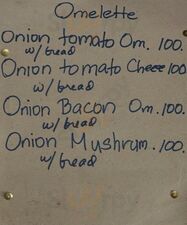 Omelette
Onion tomato Om. 100.
w/ bread
Onion tomato Cheese 100
w/ bread
Onion Bacon Om. 100.
w/ bread
Onion Mushrum. 100.
w/ bread